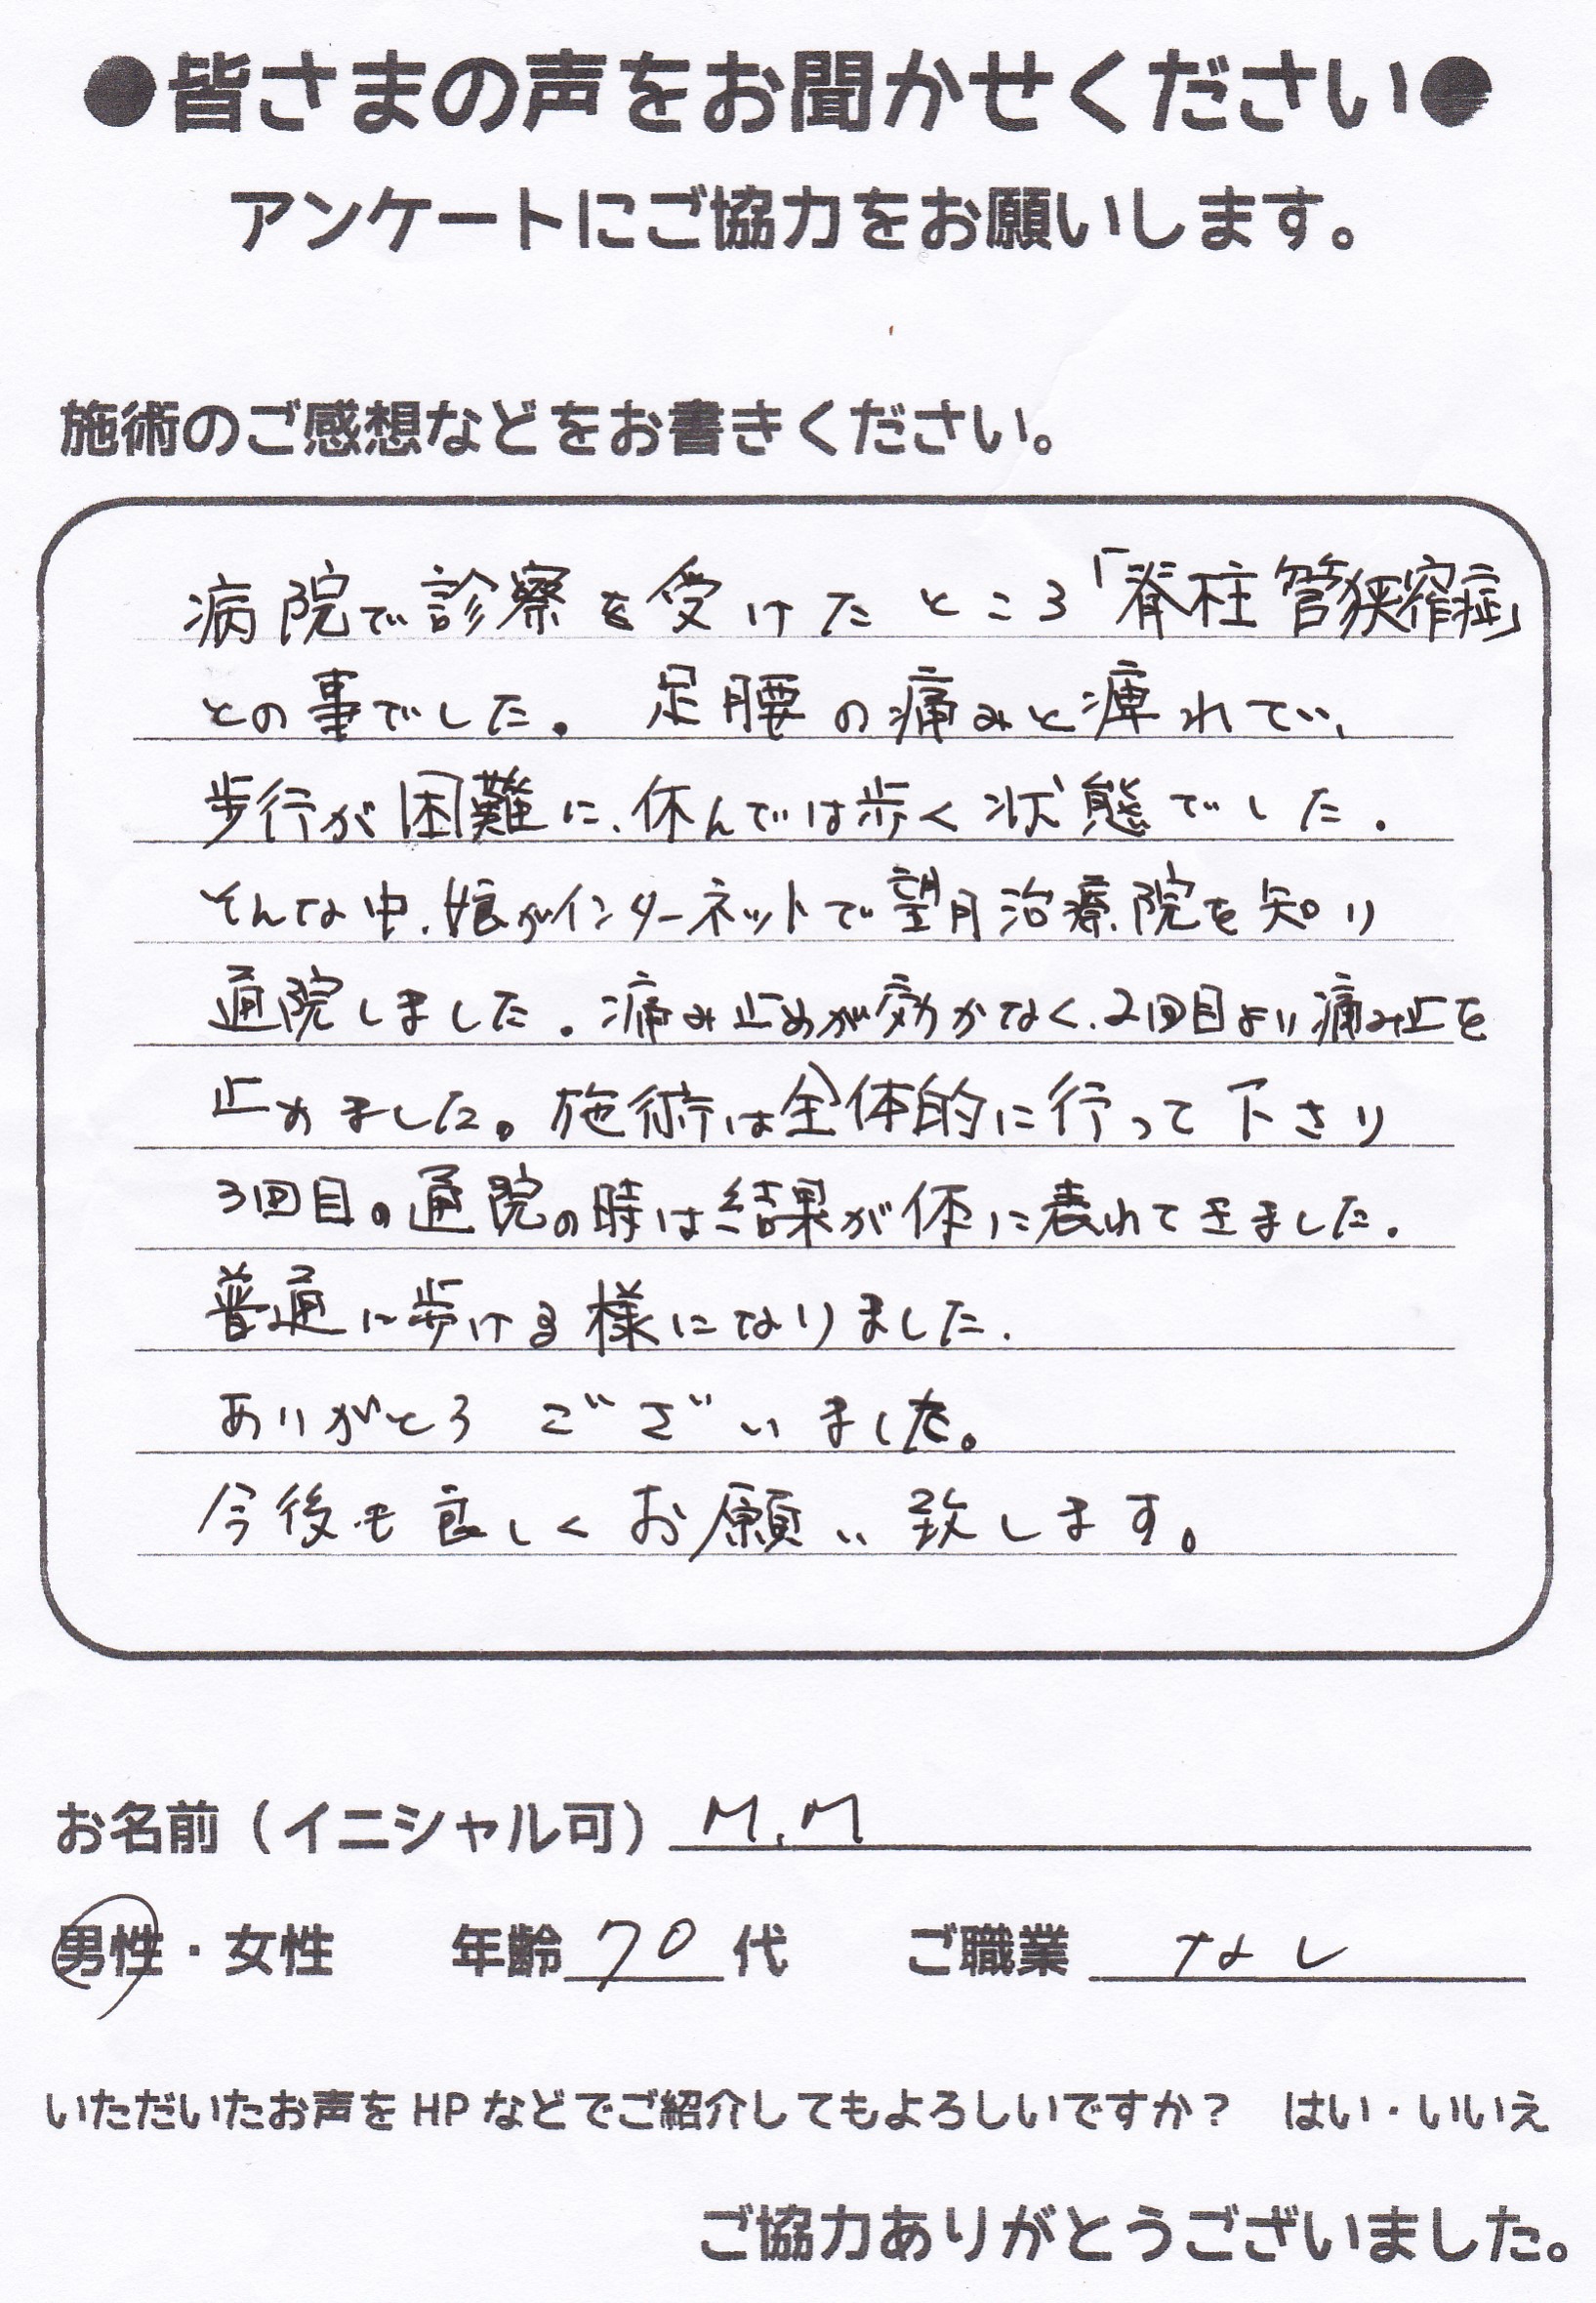 ●皆さまの声をお聞かせください●
アンケートにご協力をお願いします。
施術のご感想などをお書きください。
病院で診察を受けたところ「脊柱管狭窄症」
との事でした。足腰の痛みと痺れでい、
歩行が困難に、休んでは歩く状態でした。
そんな中、娘がインターネットで望月治療院を知り
通院しました。痛み止めが効かなく、2回目より痛み止を
止めました。施術は全体的に行って下さり
3回目の通院の時は結果が体に表れてきました。
普通に歩ける様になりました。
ありがとうございました。
今後も良しくお願い致します。
お名前（イニシャル可） M.M
男性・女性 年齢 70 代 ご職業 なし
いただいたお声をHPなどでご紹介してもよろしいですか？ はい・いいえ
ご協力ありがとうございました。